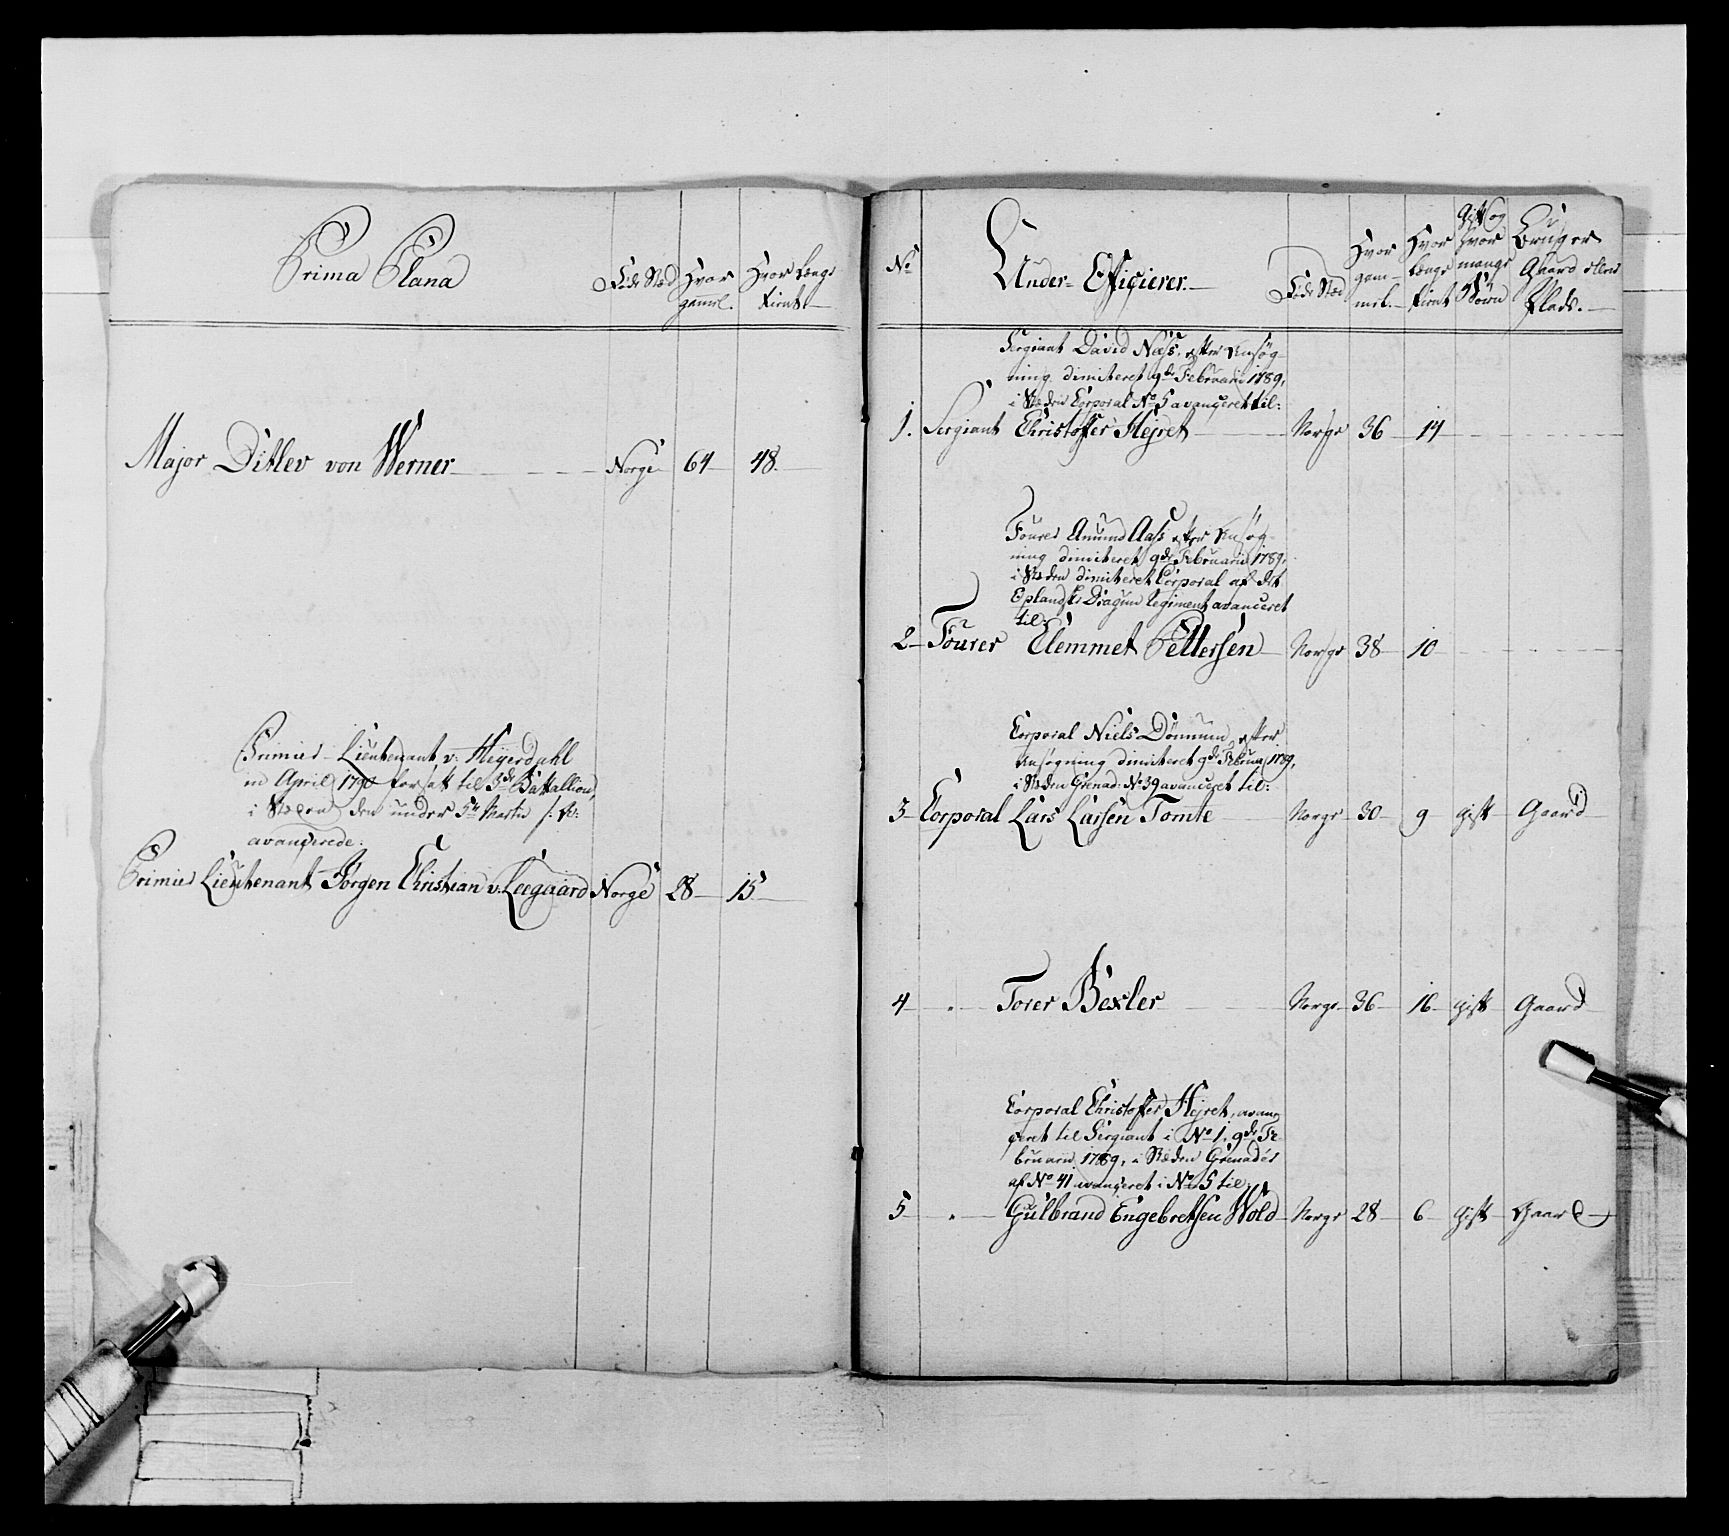 Prima Plana
Føde Stæd
Hvor
gamel.
Hvor Længe
tient
Major Ditlev von Werner
Norge
64
48.
Primier Lieutenant v: Heyerdahl
in April 1790 forsatt til 3de Battallion,
i Stæden den under
avancerede.
Primier Lieutenant Jørgen Christian v: Leegaard
Norge
28
15.
No
Under-Officierer
Føde Stæd
Hvor
gam-
mel.
Hvor
længe
tient
Gift og
hvor
mange
Børn
Bruger
Gaard eller
Plads.
Sergiant David Næss, efter Ansøg
ning dimiteret 9de Februarii 1789,
i Stæden Corporal No 5 avanceret til:
1. Sergiant Christoffer Hejret
Norge
36
14
Fourer Amund Aass efter Ansøg-
ning dimiteret 9de Februarii 1789.
i Stæden dimiteret Corporal af det
Oplandske Dragun Regiment avanceret
til:
2 Fourer Clemmet Pettersen
Norge
38
10
Corporal Niels Dønnum, efter
Ansøgning dimiteret 9de Februar 1789,
i Stæden Grenad. No 39 avanceret til:
3 Corporal Lars Larsen Tomte
Norge
30
9
gift
Gaard
4 " Torer Bexler
Norge
36
16
gift
Gaard
Corporal Christoffer Hejret, avan
ceret til Sergiant i No 1. 9de Fe
bruarii 1789, i Stæden Grenader
af No 41 avanceret i No 5 til:
5 " Gulbrand Engebretsen Wold
Norge
28
6
gift
Gaard